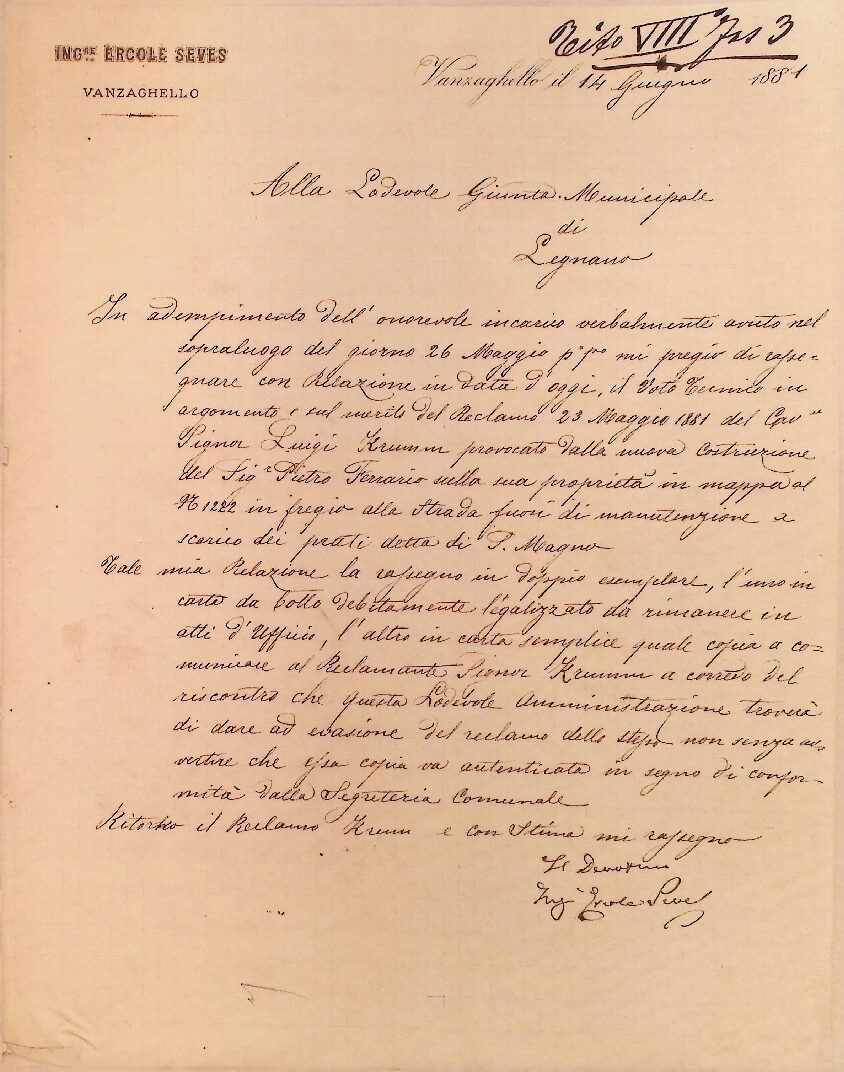 Tito VIIII Fas 3
INGRE ERCOLE SEVES
VANZAGHELLO
Vanzaghello il 14 Giugno 1881
Alla Lodevole Giunta Municipale
di
Legnano
In adempimento dell' onorevole incarico verbalmente avuto nel
sopraluogo del giorno 26 Maggio p° p° mi pregio di rasse=
gnare con Relazione in data d'oggi, il Voto Tecnico in
argomento e sul merito del Reclamo 23 Maggio 1881 del Cav
Signor Luigi Krumm provocato dalla nuova costruzione
del Sigr Pietro Ferrario sulla sua proprietà in mappa al
N 1222 in fregio alla Strada fuori di manutenzione a
scarico dei prati detta di S. Magno
Tale mia Relazione la rassegno in doppio esemplare, l'uno in
carta da bollo debitamente legalizzato da rimanere in
atti d'Ufficio, l'altro in carta semplice quale copia a co=
municare al Reclamante Signor Krumm a corredo del
riscontro che questa Lodevole Amministrazione troverà
di dare ad evasione del reclamo dello stesso non senza av=
vertire che essa copia va autenticata in segno di confor=
mità dalla Segreteria Comunale
Ritorno il Reclamo Krum e con Stima mi rassegno
Il Devotmo
Ing Ercole Seves